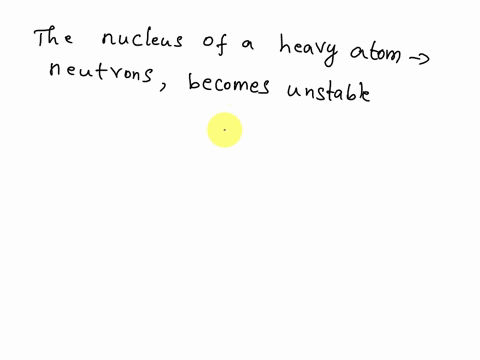 The nucleus of a heavy atom →
neutrons, becomes unstable